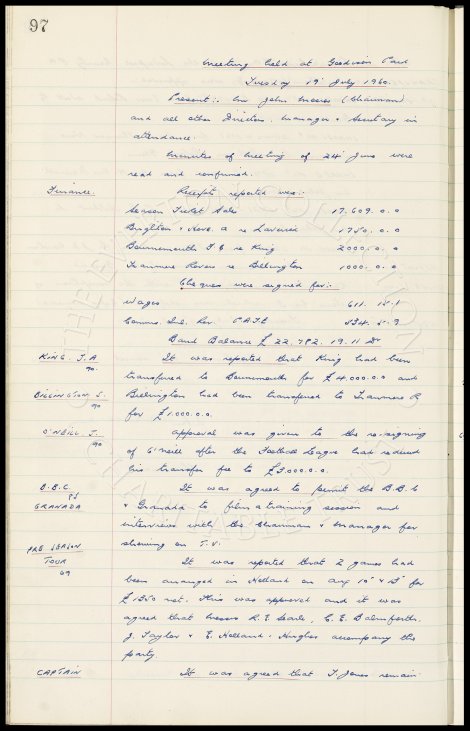 97
Meeting held at Goodison Park
Tuesday 19 July 1960.
Present:- Mr John Moores (Chairman)
and all other Directors. Manager & Secretary in
attendance.
Minutes of Meeting of 24 June were
read and confirmed.
Finance. Receipts reported were:-
Season Ticket Sales 17.609.0.0
Brighton & Hove. A re Laverick 1750.0.0
Bournemouth F C re King 2000.0.0
Tranmere Rovers re Billington 1000.0.0
Cheques were signed for:-
Wages 611.15.1
Comms. Inl. Rev. P.A.Y.E 534.5.9
Bank Balance £22,792.19.11 Dr
KING. J.A It was reported that King had been
transferred to Bournemouth for £4,000.0.0 and
BILLINGTON. S. Billington had been transferred to Tranmere R
for £1.000.0.0.
O'NEILL. J. Approval was given to the re-signing
of O'Neill after the Football League had reduced
his transfer fee to £3,000.0.0.
B.B.C. It was agreed to permit the B.B.C
GRANADA & Granada to film a training session and
interviews with the Chairman & Manager for
showing on T.V.
PRE SEASON TOUR It was reported that 2 games had
been arranged in Holland on Aug 10 & 13 for
£1350 net. This was approved and it was
agreed that Messrs R.E. Searle, C.E. Balmforth.
J. Taylor & E. Holland-Hughes accompany the
party.
CAPTAIN It was agreed that T. Jones remain
THE EVERTON COLLECTION
CHARITABLE TRUST